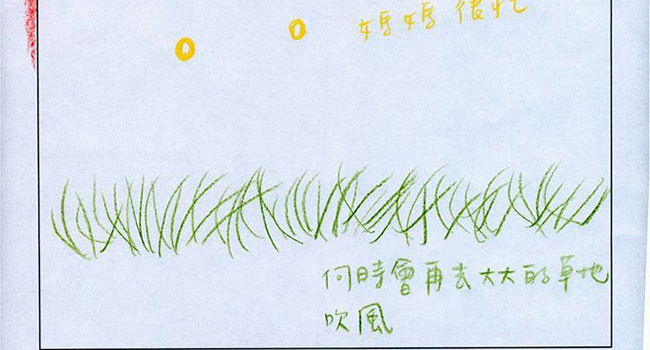 媽媽很忙
何時會再去大大的草地
吹風